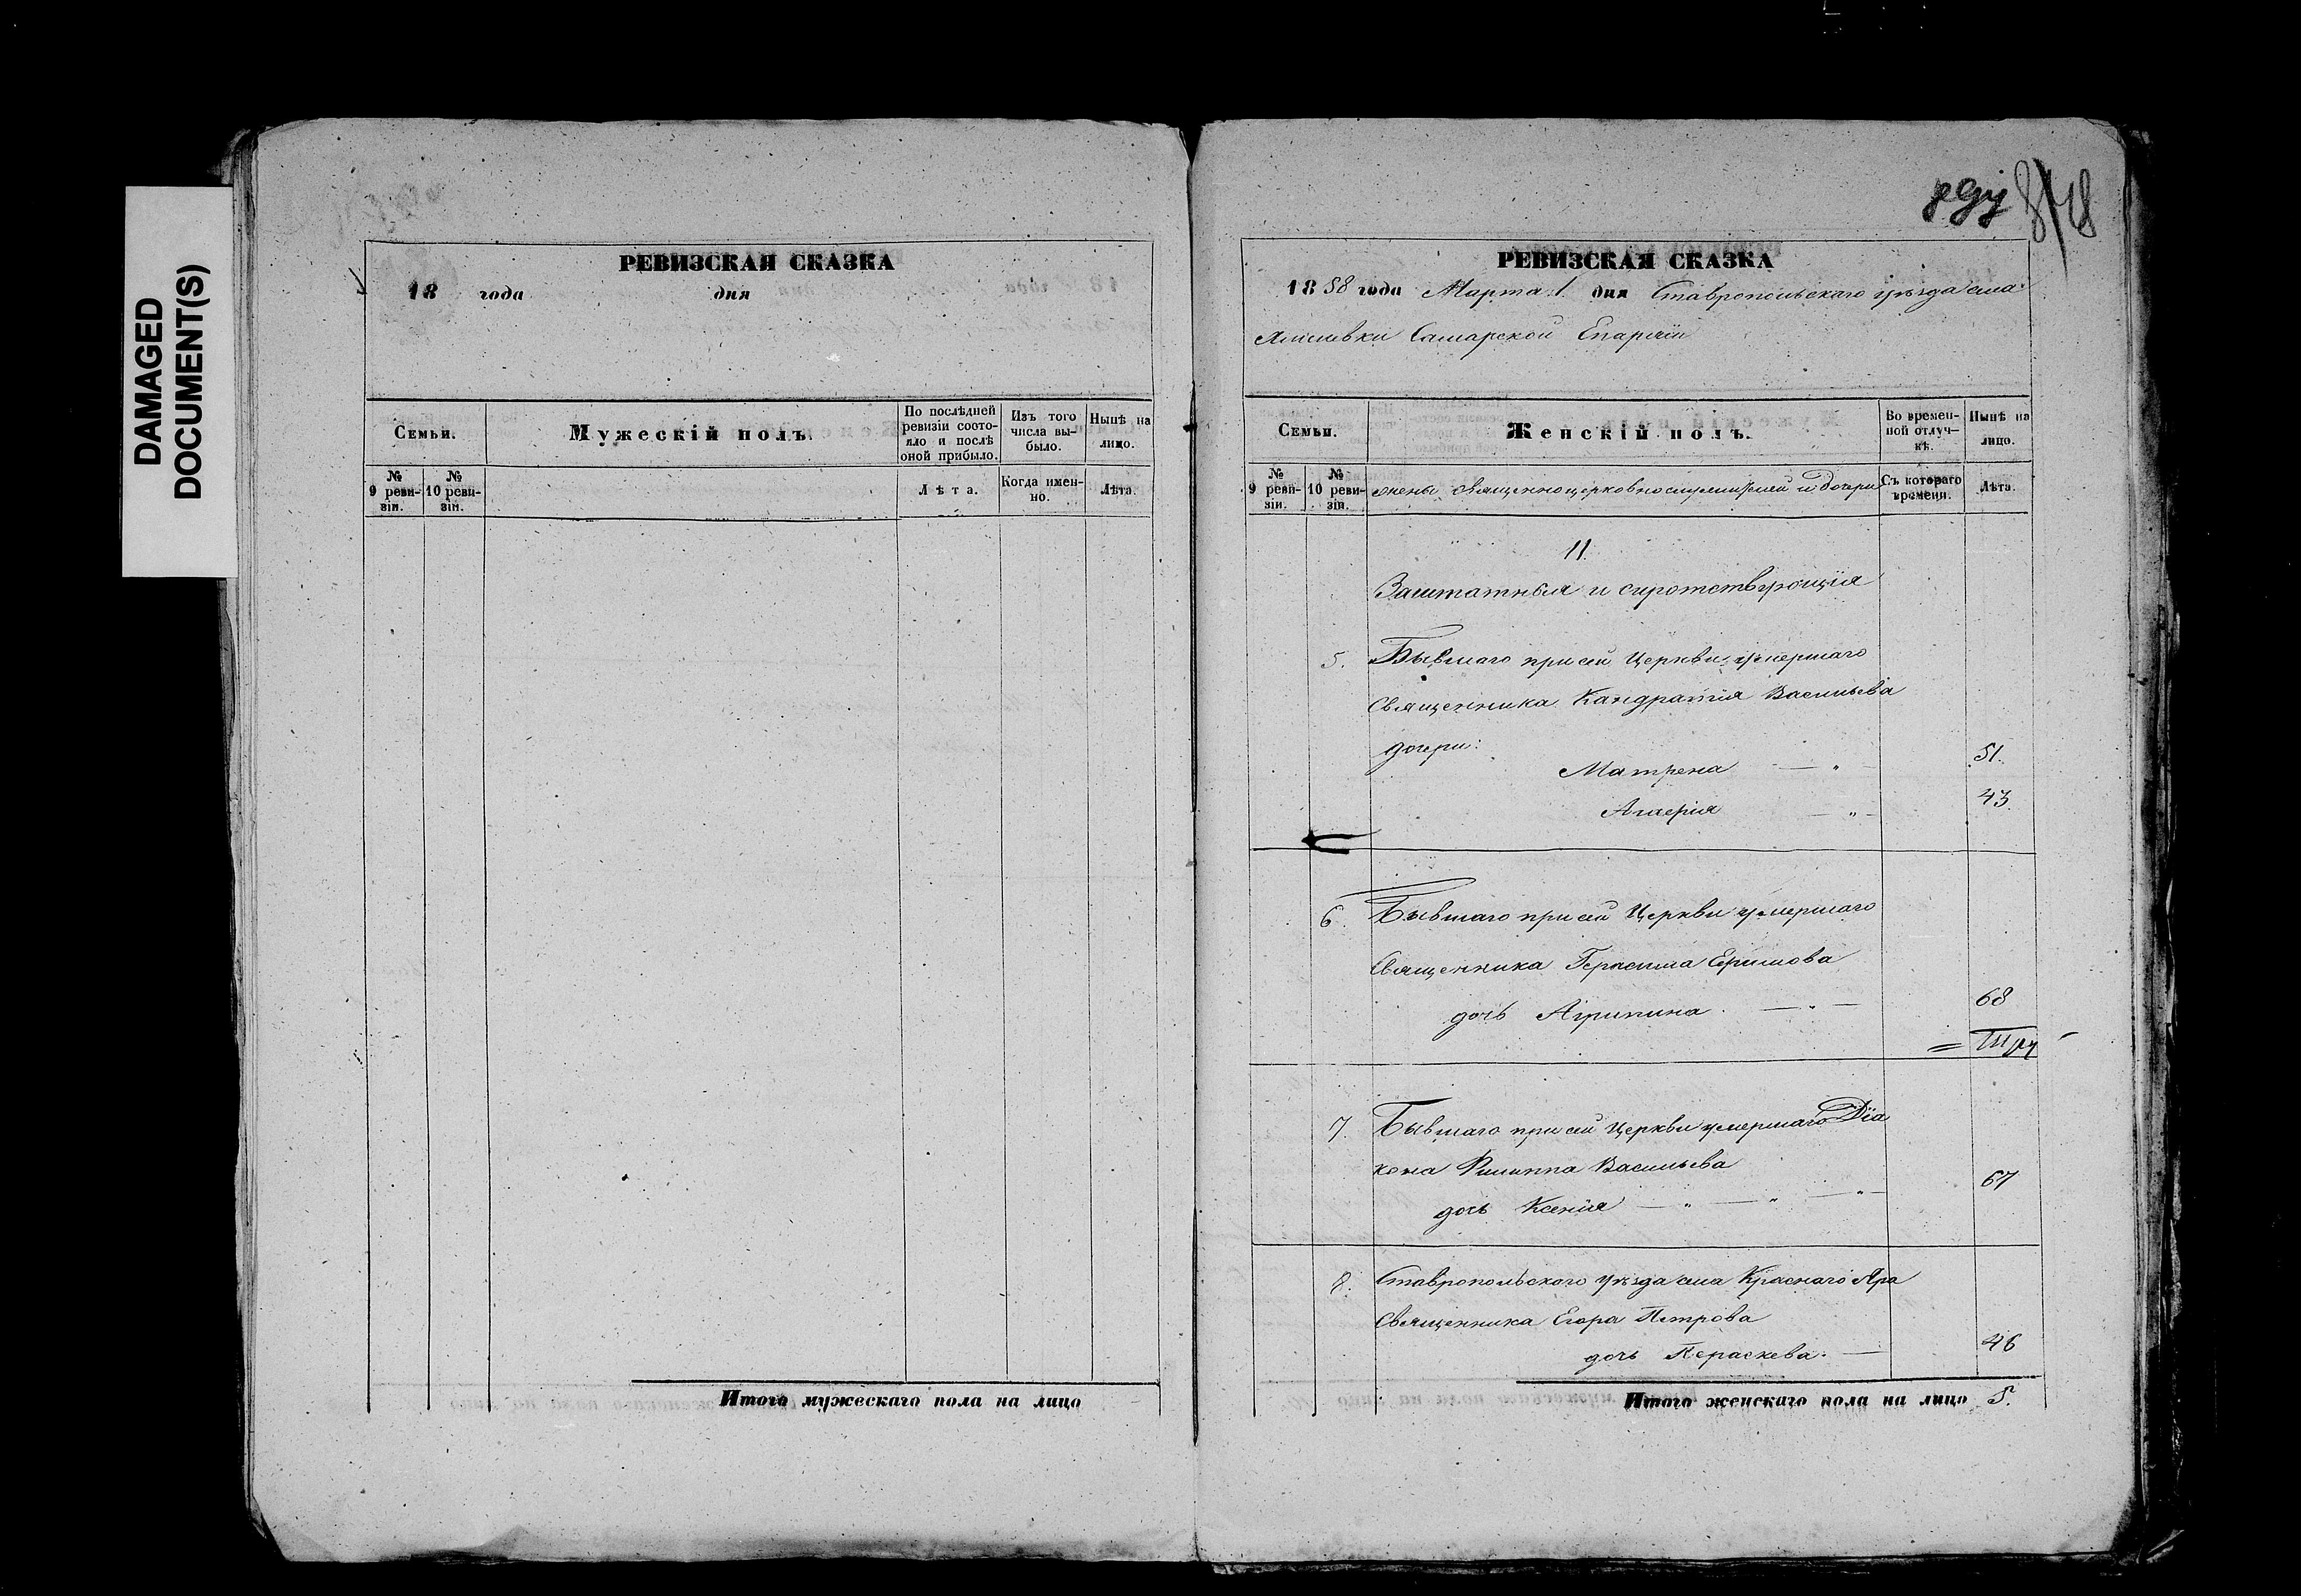 DAMAGED
DOCUMENT(S)
РЕВИЗСКАЯ СКАЗКА
18 года дня
Семьи.
Мужескій полъ.
По послѣдней ревизіи состояло и послѣ оной прибыло.
Изъ того числа выбыло.
Нынѣ на лицо.
№ 9 ревизіи.
№ 10 ревизіи.
Лѣта.
Когда именно.
Лѣта.
Итого мужескаго пола на лицо
РЕВИЗСКАЯ СКАЗКА
1858 года Марта 1 дня Ставропольскаго уѣзда села
Самарской Епархіи
Семьи.
Женскій полъ.
Во временной отлучкѣ.
Нынѣ на лицо.
№ 9 ревизіи.
№ 10 ревизіи.
жены священноцерковнослужителей и дочери
Съ котораго времени.
Лѣта.
11.
Заштатныя и сиротствующія
5. Бывшаго при сей Церкви умершаго
Священника Кандратія Васильева
дочери:
Матрена — „ — 51.
43.
6. Бывшаго при сей Церкви умершаго
Священника Герасима Ефимова
дочь Агрипина. — „ — 68
7. Бывшаго при сей Церкви умершаго Діа
кона Филиппа Васильева
дочь Ксенія — „ — „ — „ — 67
8. Ставропольскаго уѣзда села Краснаго Яра
Священника Егора Петрова
дочь Параскева. — 46
Итого женскаго пола на лицо 5.